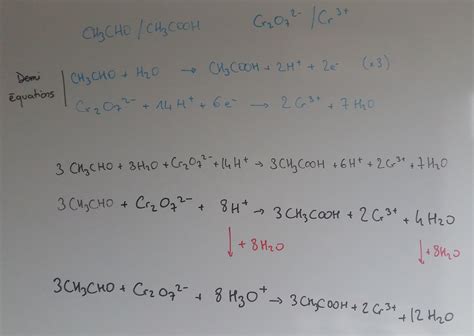 CH₃CHO / CH₃COOH    Cr₂O₇²⁻ / Cr³⁺
Demi Équations
CH₃CHO + H₂O → CH₃COOH + 2H⁺ + 2e⁻ (x3)
Cr₂O₇²⁻ + 14H⁺ + 6e⁻ → 2Cr³⁺ + 7H₂O
3CH₃CHO + 3H₂O + Cr₂O₇²⁻ + 14H⁺ → 3CH₃COOH + 6H⁺ + 2Cr³⁺ + 7H₂O
3CH₃CHO + Cr₂O₇²⁻ + 8H⁺ → 3CH₃COOH + 2Cr³⁺ + 4H₂O
↓ +8H₂O    ↓ +8H₂O
3CH₃CHO + Cr₂O₇²⁻ + 8H₃O⁺ → 3CH₃COOH + 2Cr³⁺ + 12H₂O